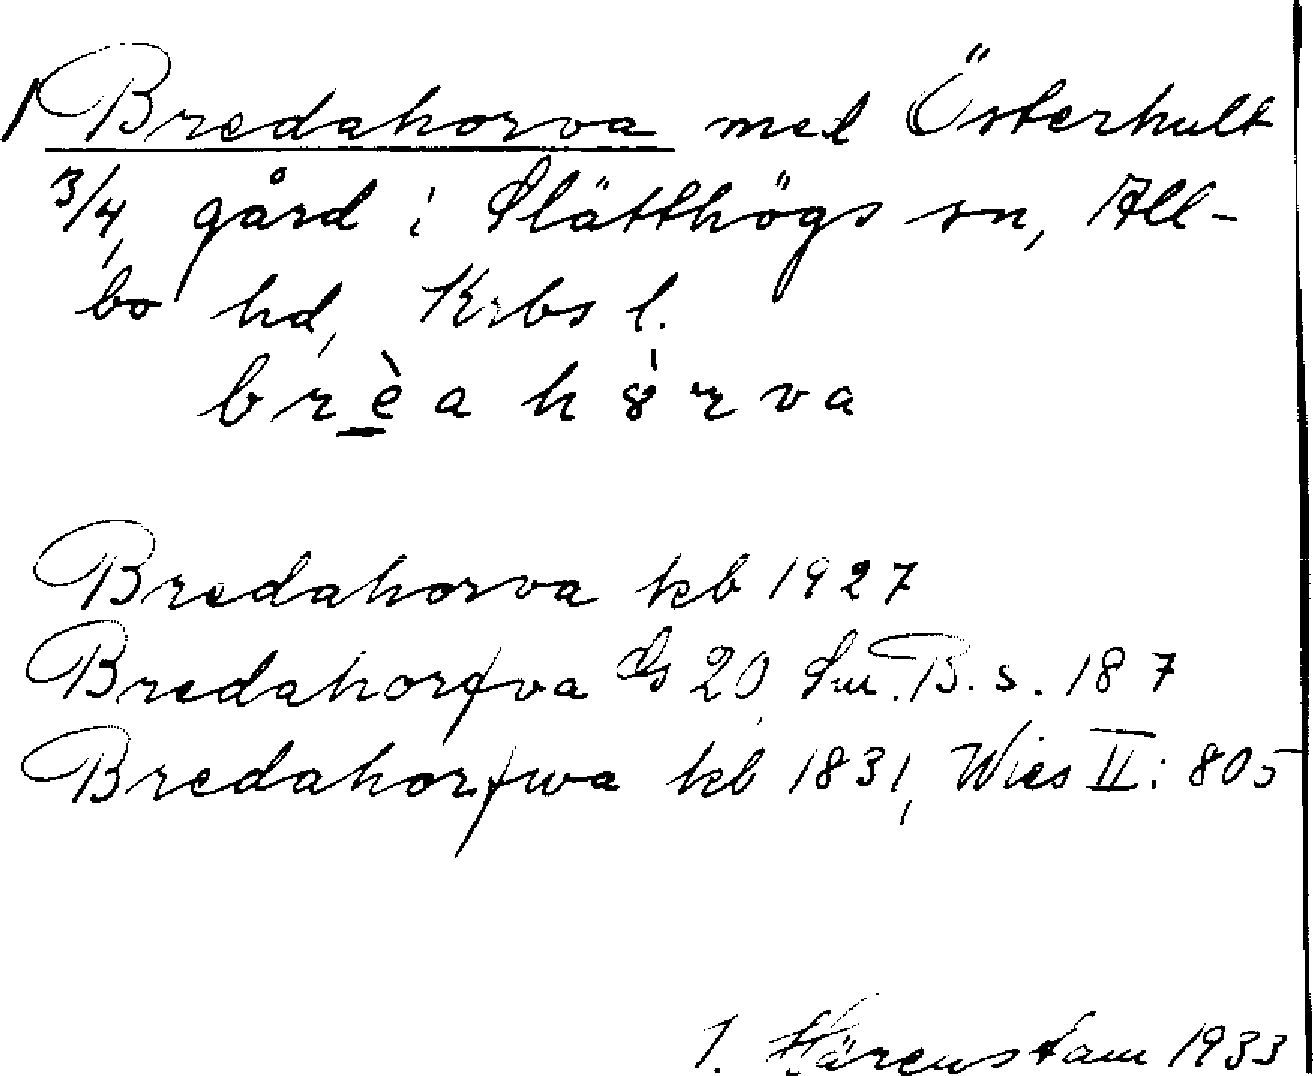 Bredahorva med Österhult
3/4 gård i Slätthögs sn, All-
bo hd, Krbs l.
brèa hȣ̀rva
Bredahorva kb 1927
Bredahorfva GS 20, Sm. B. s. 187
Bredahorfwa kb 1831, Wies II: 805
J. Härenstam 1933